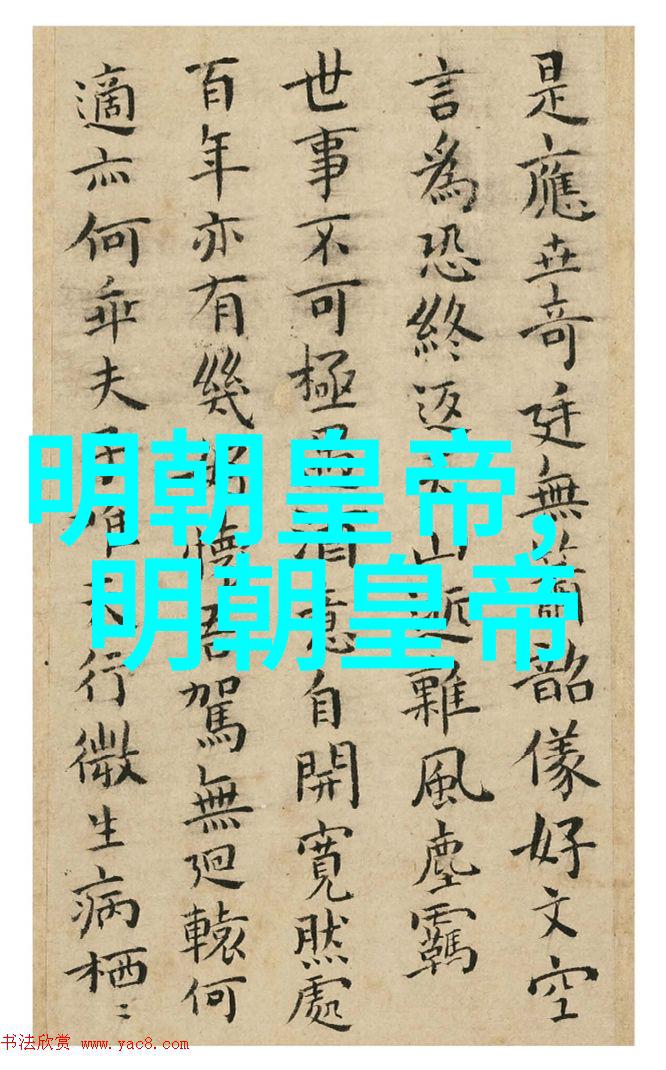 是應去奇廷無簫韶儀好文空
言為恐終返 山逝難風塵羈
世事不可極 酒意自開寬然處
百年亦有幾 好懷吾駕無迴轅何
適亦何乖夫 行微生病栖〻
明朝皇帝,
明朝皇帝
书法欣赏 www.yac8.com